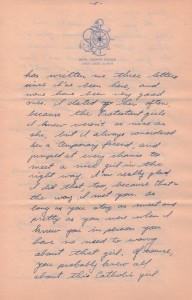 has written me three letters
since I've been here, and
were have been very good
ones. I dated her often,
because the Protestant girls
I knew weren't as nice as
she, but I always considered
her a temporary friend, and
jumped at every chance to
meet a nice girl in the
right way. I'm really glad
I did that too, because that's
the way I met you. As
long as you stay as sweet and
pretty as you were when I
knew you in person you
have no need to worry
about that girl. Of course,
you probably knew all
about this Catholic girl